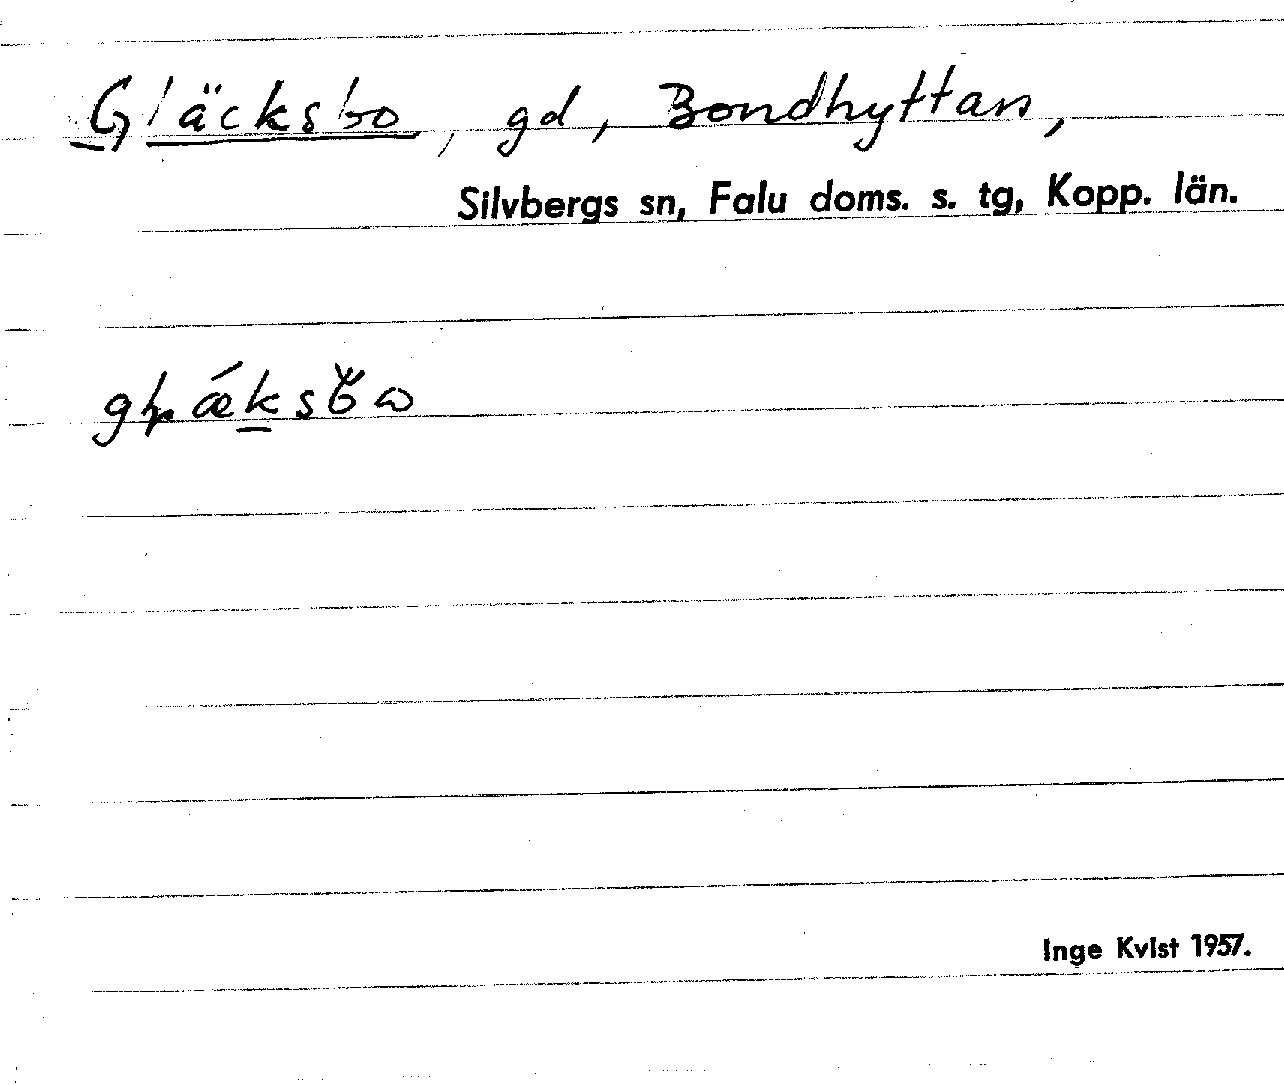 Gläcksbo, gd, Bondhyttan,
Silvbergs sn, Falu doms. s. tg, Kopp. län.
Inge Kvist 1957.